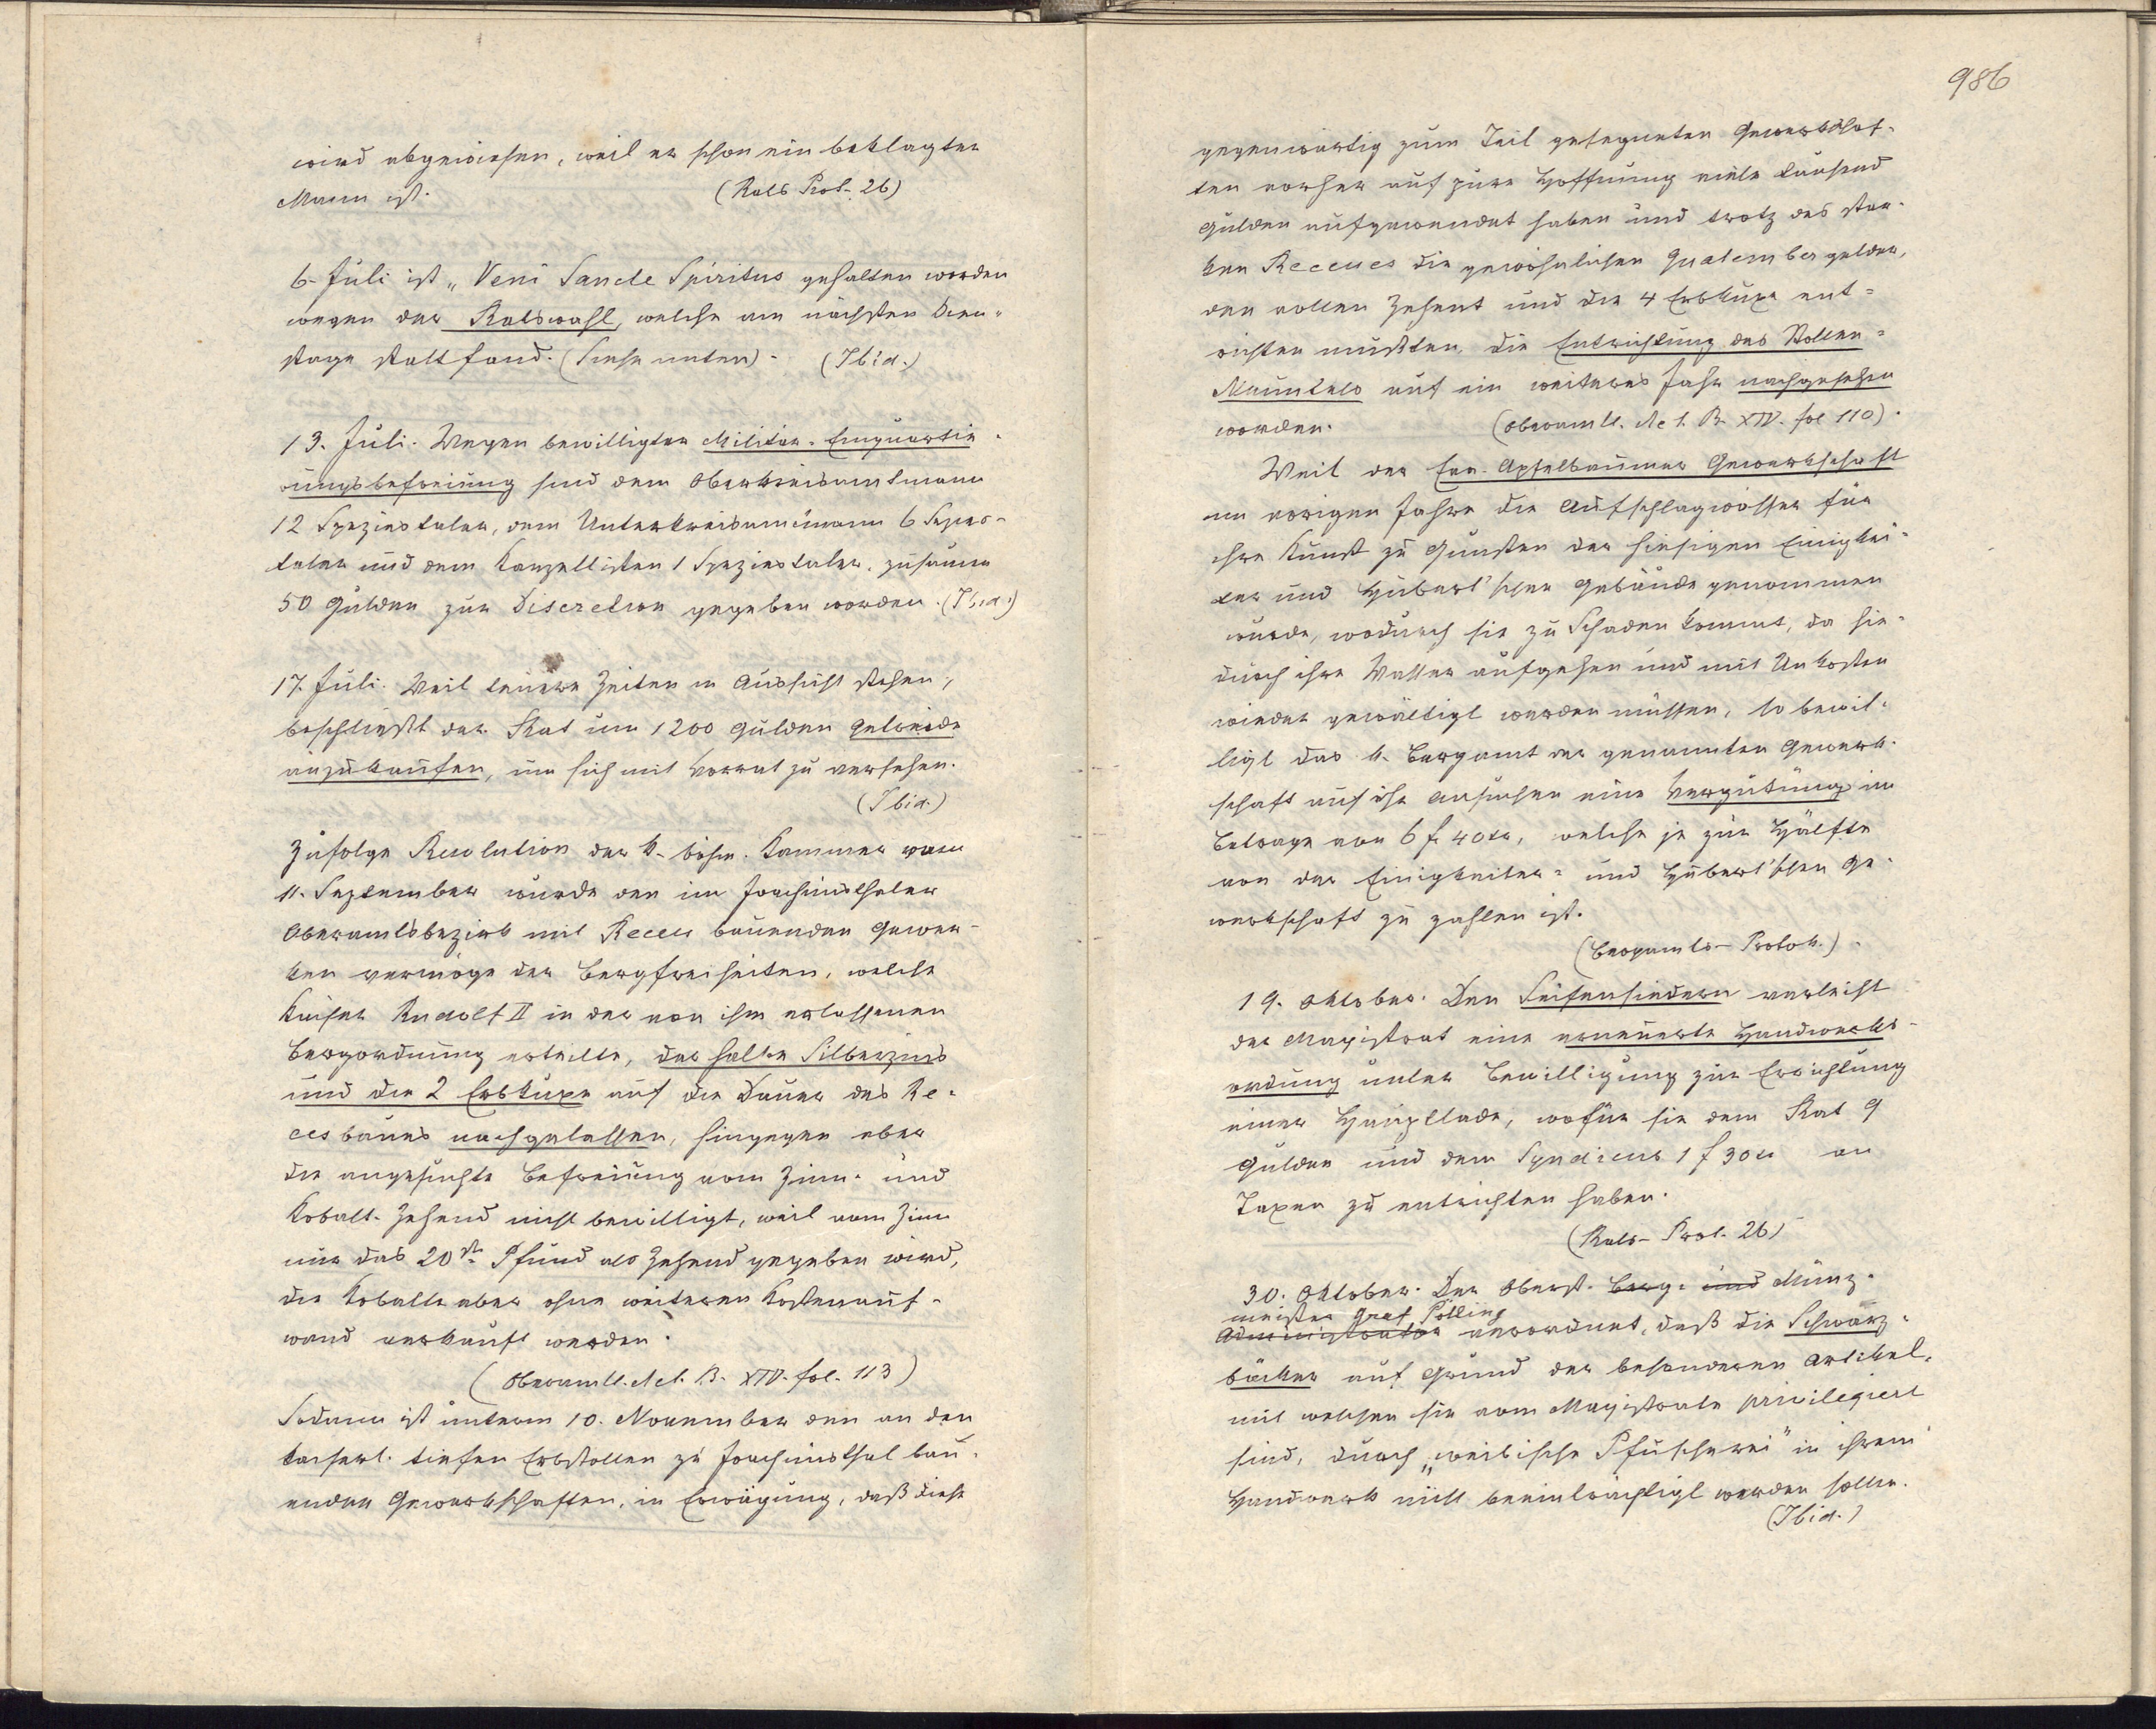 wird abgewiesen, weil er schon ein beklagter
Mann ist. (Rats Prot. 26)
6. Juli ist „Veni Sancte Spiritus gehalten worden
wegen der Ratswahl, welche am nächsten Dien-
stage stattfand. (Siehe unten) - (Ibid.)
13. Juli. Wegen bewilligter Militär-Einquartie-
rungsbefreiung sind dem Oberkreisamtmann
12 Speziestaler, dem Unterkreisamtmann 6 Spezies-
taler und dem Kanzellisten 1 Speziestaler, zusamm
50 Gulden zur Discretion gegeben worden. (Ibid.)
17. Juli. Weil teuere Zeiten in Aussicht stehen,
beschließt der Rat um 1200 Gulden Getreide
anzukaufen, um sich mit Vorrat zu versehen.
(Ibid.)
Zufolge Resolution der k. böhm. Kammer vom
11. September wurde den im Joachimsthaler
Oberamtsbezirk mit Recess bauenden Gewer-
ken vermöge der Bergfreiheiten, welche
Kaiser Rudolf II in der von ihm erlassenen
Bergordnung erteilte, der halbe Silberzins
und die 2 Erbkuxe auf die Dauer des Re-
cesbaues nachgelassen, hingegen aber
die angesuchte Befreiung vom Zinn- und
Kobalt-Zehend nicht bewilligt, weil vom Zinn
nur das 20te Pfund als Zehend gegeben wird,
die Kobalte aber ohne weiteren Kostenauf-
wand verkauft werden.
(Oberamtl. Act. B. XIV. fol. 113)
Sodann ist unterm 10. November den an den
kaiserl. tiefen Erbstollen zu Joachimsthal bau-
enden Gewerkschaften, in Erwägung, daß diese
986
gegenwärtig zum Teil gesegneten Gewerkschaf-
ten vorher auf pure Hoffnung viele tausend
Gulden aufgewendet haben und trotz des star-
ken Recesses die gewöhnlichen Quatembergelder,
den vollen Zehent und die 4 Erbkuxe ent-
richten mußten, die Entrichtung des Stollen-
Neuntels auf ein weiteres Jahr nachgesehen
worden. (Oberamtl. Act. B. XIV. fol 110).
Weil der Apfelbaumer Gewerkschaft
im vorigen Jahre die Aufschlagwasser für
ihre Kunst zu Gunsten der hiesigen Einigkei-
ter und Hubert'schen Gebäude genommen
wurde, wodurch sie zu Schaden kommt, da hie-
durch ihre Wasser aufgehen und mit Unkosten
wieder gewältigt werden müssen, so bewil-
ligt das k. Bergamt der genannten Gewerk-
schaft auf ihr Ansuchen eine Vergütung im
Betrage von 6 f 40 xr, welche je zur Hälfte
von der Einigkeiter- und Hubert'schen Ge-
werkschaft zu zahlen ist.
(Bergamts-Protok.) -
19. Oktober. Den Seifensiedern verleiht
der Magistrat eine erneuerte Handwerks-
ordnung unter Bewilligung zur Errichtung
einer Hauptlade, wofür sie dem Rat 9
Gulden und dem Syndicus 1 f 30 xr an
Taxen zu entrichten haben.
(Rats-Prot. 26)
30. Oktober. Der Oberst- Berg- und Münz-
meister Graf Pötting
Administrator verordnet, daß die Schwarz-
bäcker auf Grund der besonderen Artikel,
mit welchen sie vom Magistrate privilegiert
sind, durch „weibische Pfuscherei" in ihrem
Handwerk nicht beeinträchtigt werden sollen.
(Ibid.)